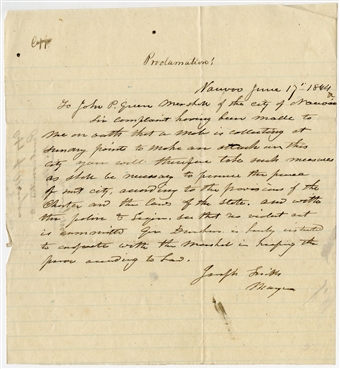 Copy
Proclamation!
Nauvoo June 17th 1844
To John P. Green Marshall of the city of Nauvoo
Sir complaint having been made to
me on oath that a Mob is collecting at
Sunday points to make an attack on this
city you will therefore take such measures
as shall be necessary to preserve the peace
of said city, according to the provisions of the
Charter and the laws of the State, and with
the police & Legion see that no violent act
is committed Gen Dunham is hereby instructed
to cooperate with the Marshal in keeping the
peace according to law.
Joseph Smith
Mayor